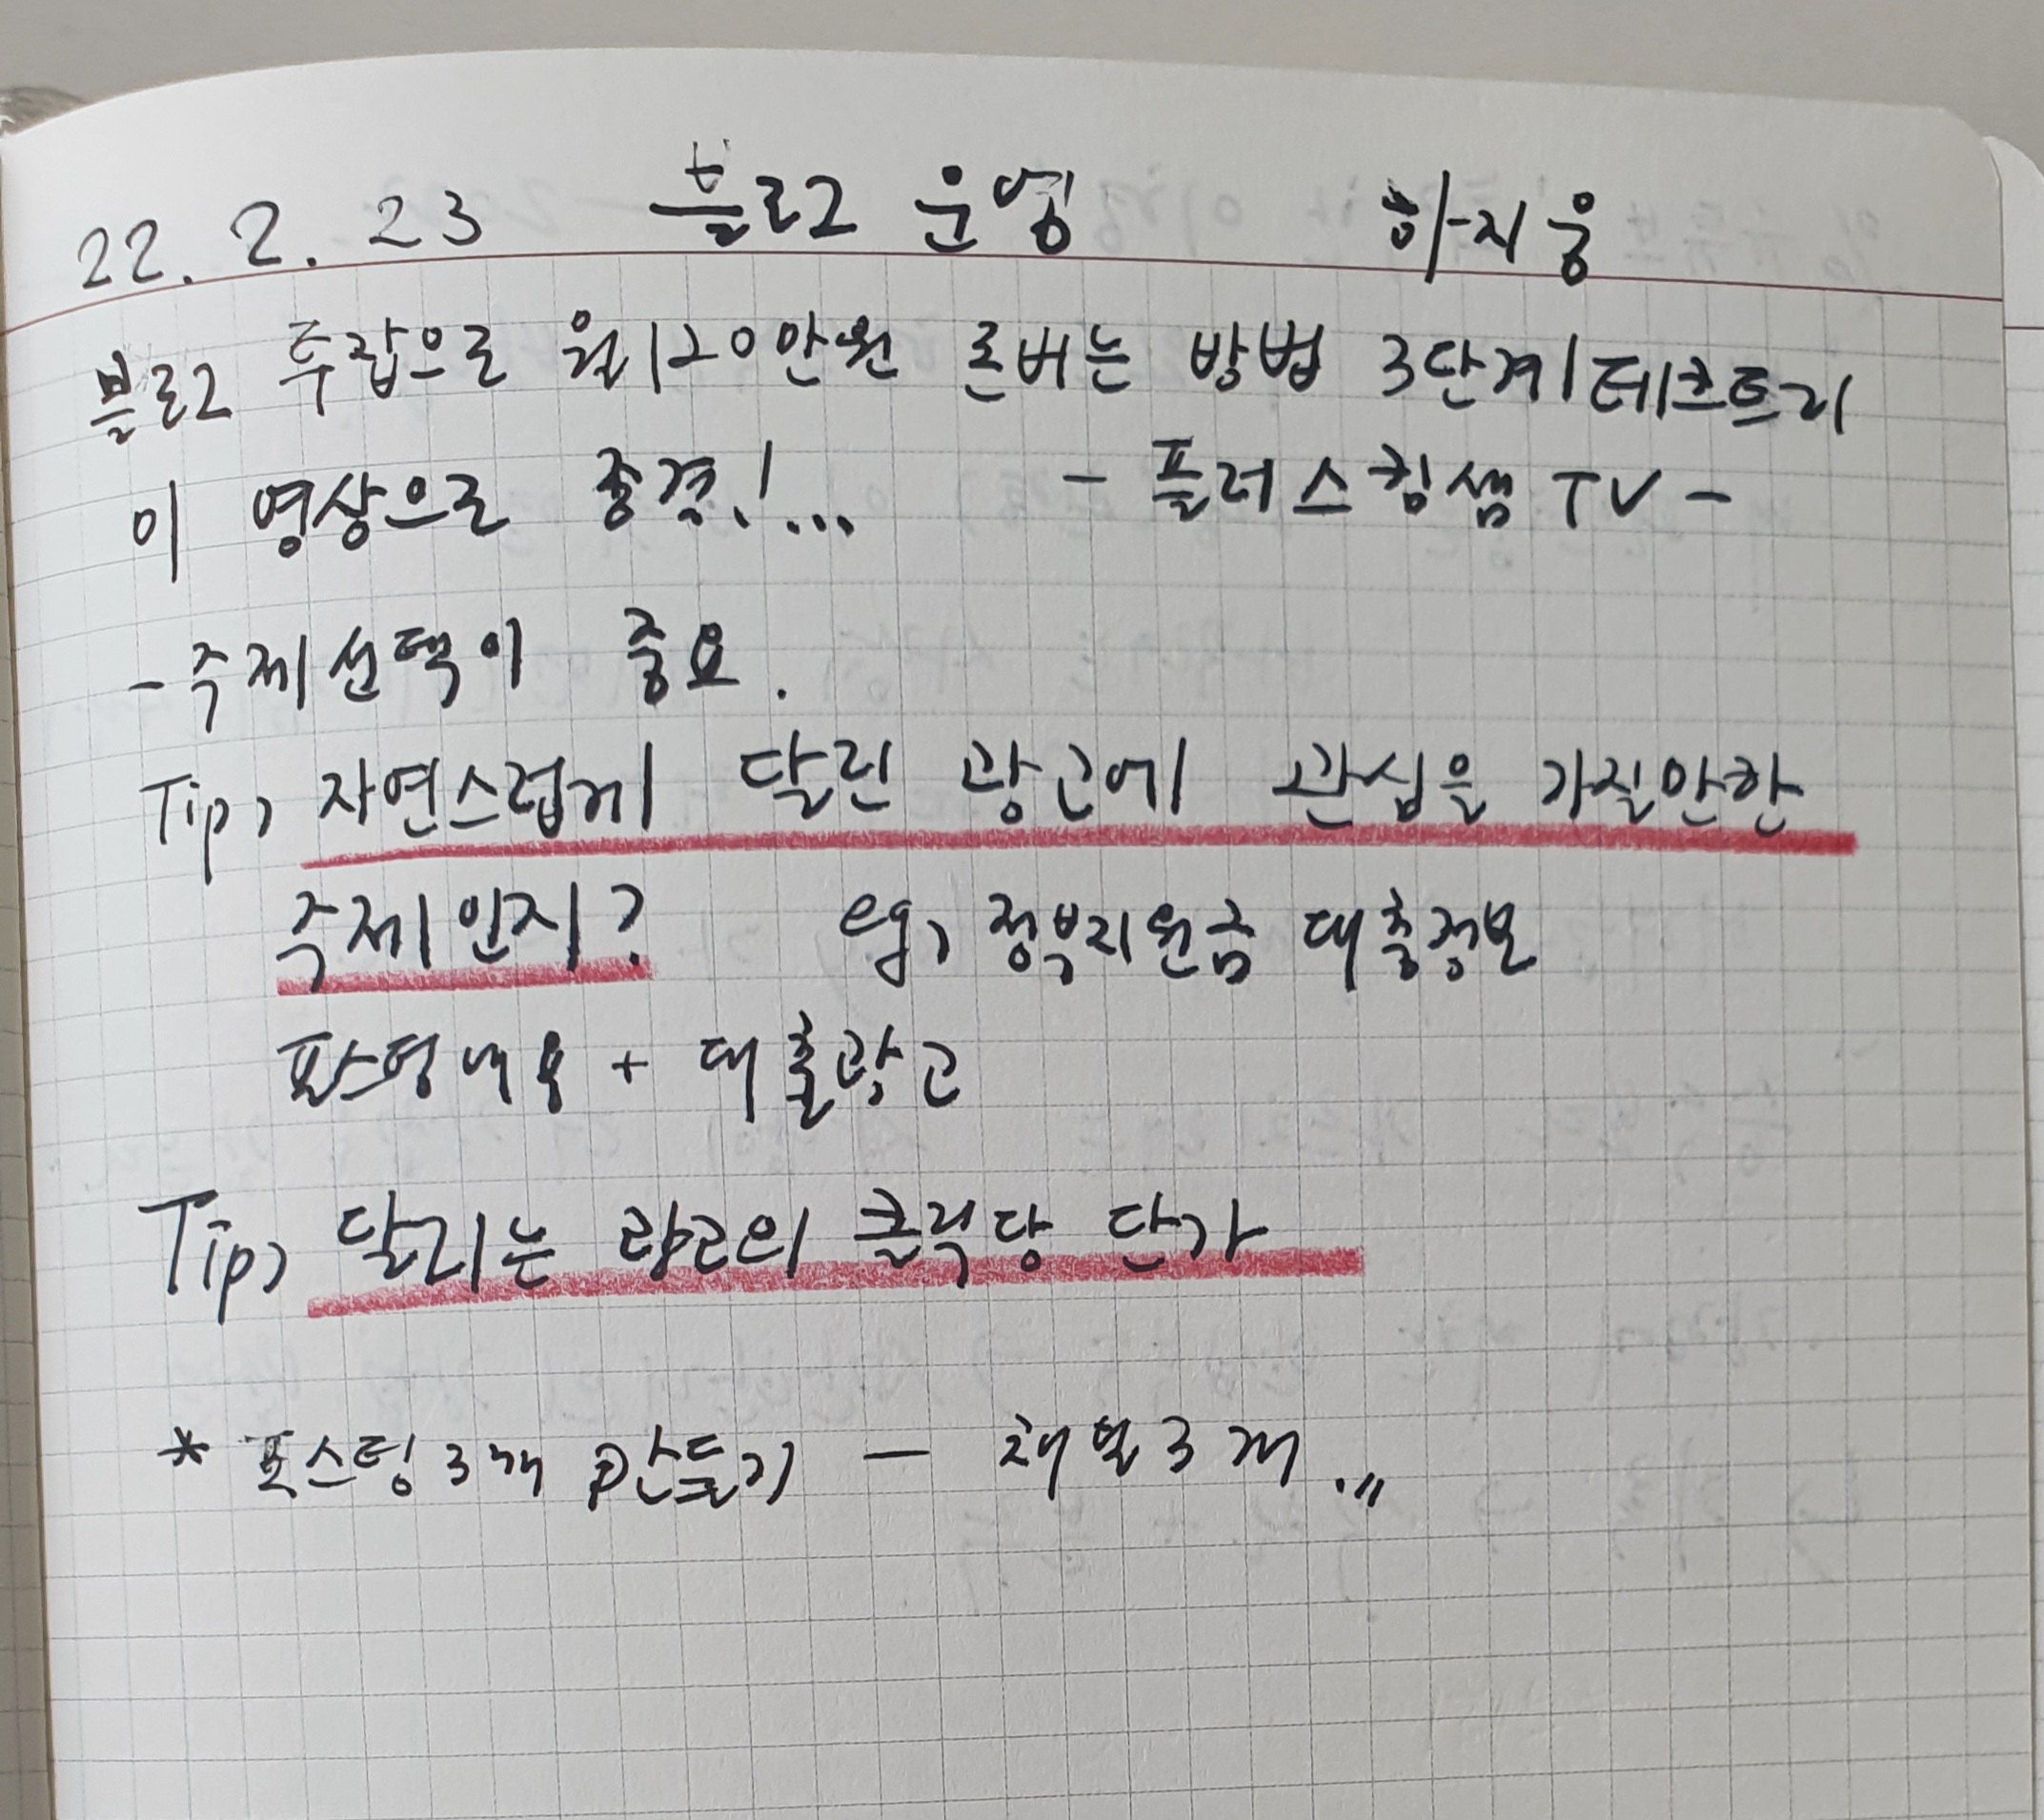 22. 2. 23 블로그 운영 하지웅
블로그 투잡으로 월 120만원 돈버는 방법 3단계 테크트리
이 영상으로 종결!...  - 플러스힘쌤 TV -
- 주제선택이 중요.
Tip, 자연스럽게 달린 광고에 관심을 가질만한
주제인지? eg, 정부지원금 대출정보
포스팅내용 + 대출광고
Tip, 달리는 광고의 클릭당 단가
* 포스팅 3개 만들기 - 채널 3개...